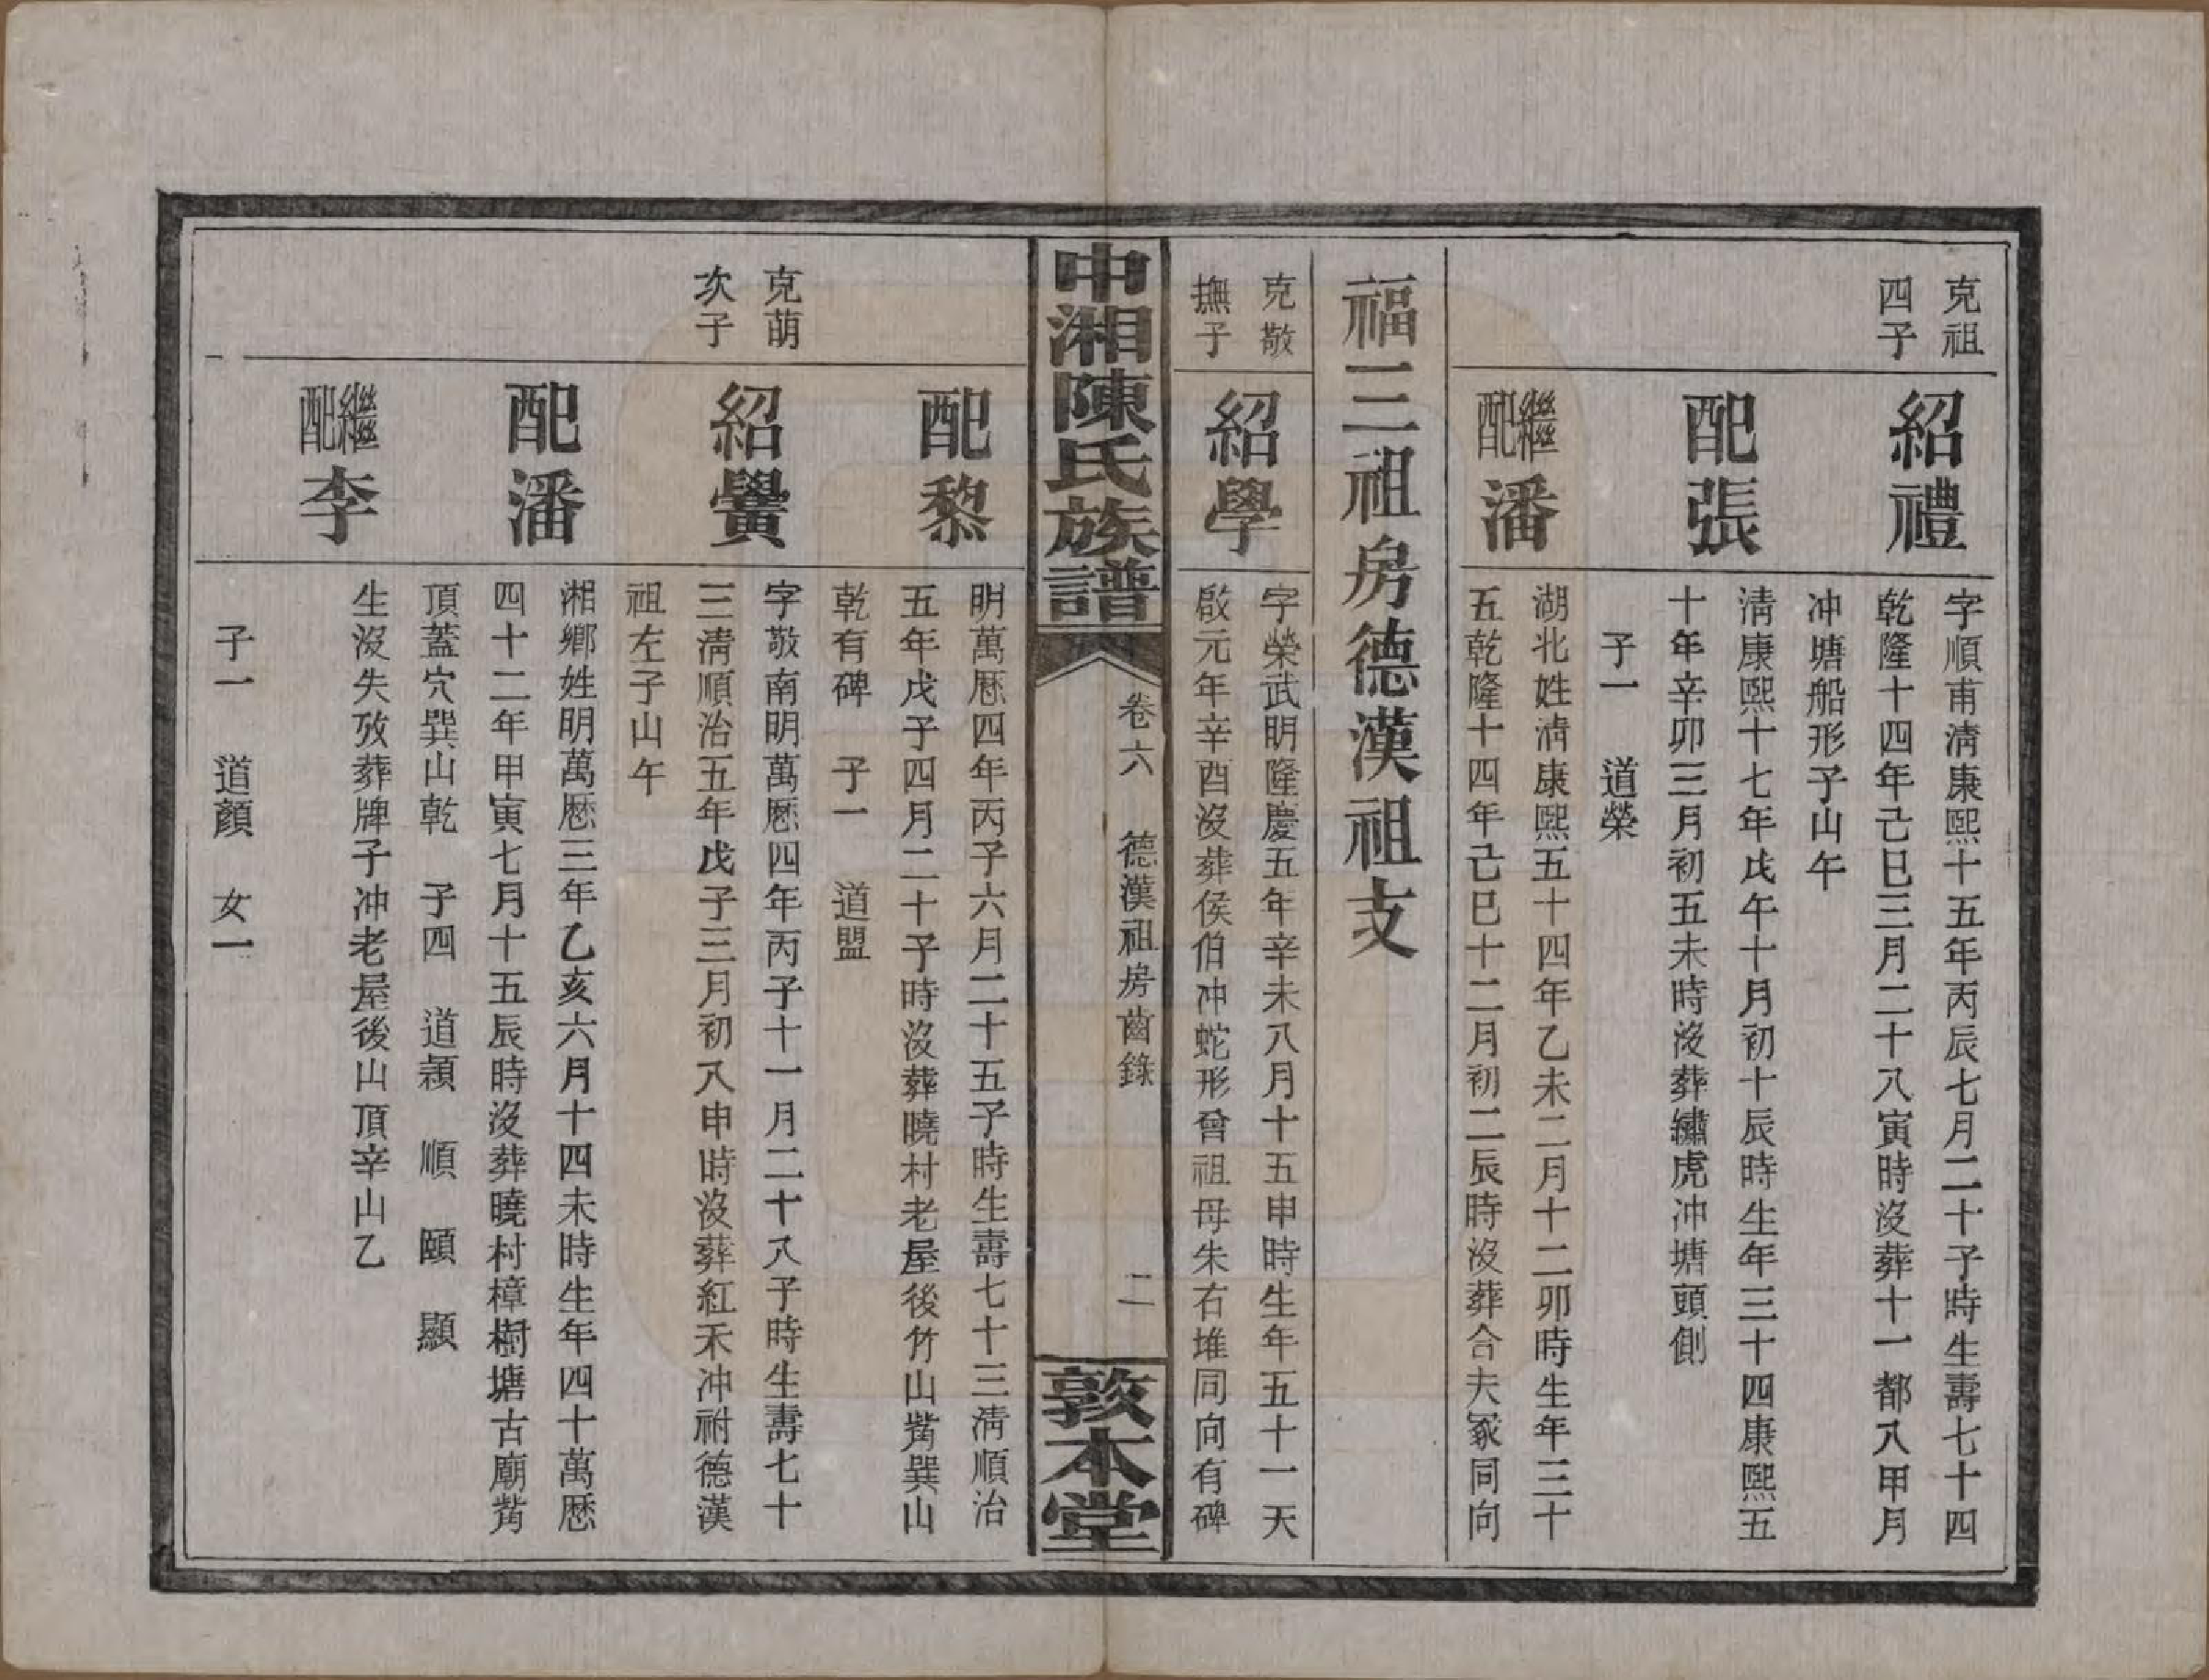 克祖
四子
紹禮
字順甫清康熙十五年丙辰七月二十子時生壽七十四
乾隆十四年己巳三月二十八寅時沒葬十一都八甲月
冲塘船形子山午
配張
清康熙十七年戊午十月初十辰時生年三十四康熙五
十年辛卯三月初五未時沒葬繡虎冲塘頭側
子一　道榮
繼配潘
湖北姓清康熙五十四年乙未二月十二卯時生年三十
五乾隆十四年己巳十二月初二辰時沒葬合夫冢同向
福三祖房德漢祖支
克敬
撫子
紹學
字榮武明隆慶五年辛未八月十五申時生年五十一天
啟元年辛酉沒葬侯伯冲蛇形曾祖母朱右堆同向有碑
中湘陳氏族譜
卷六　德漢祖房齒錄　二
敦本堂
配黎
明萬厯四年丙子六月二十五子時生壽七十三清順治
五年戊子四月二十子時沒葬曉村老屋後竹山觜巽山
乾有碑　子一　道盟
克萌
次子
紹黌
字敬南明萬厯四年丙子十一月二十八子時生壽七十
三清順治五年戊子三月初八申時沒葬紅禾冲祔德漢
祖左子山午
配潘
湘鄉姓明萬厯三年乙亥六月十四未時生年四十萬厯
四十二年甲寅七月十五辰時沒葬曉村樟樹塘古廟觜
頂蓋穴巽山乾　子四　道頴　順　頤　顯
繼配李
生沒失攷葬牌子冲老屋後山頂辛山乙
子一　道顏　女一